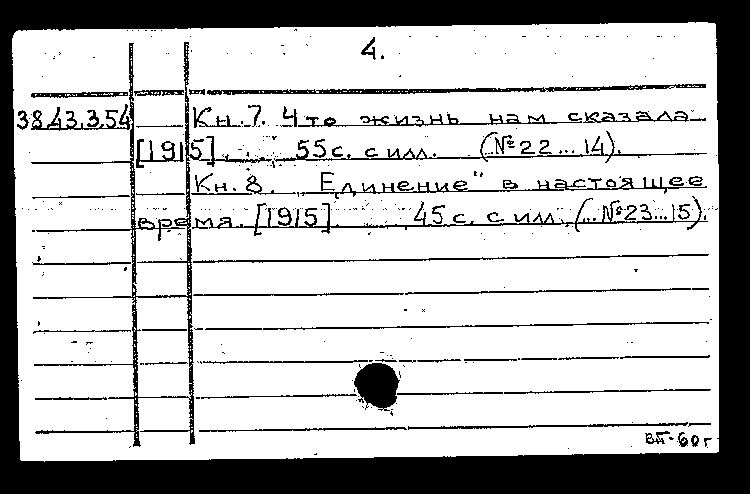 4.
38.43.3.54 Кн. 7. Что жизнь нам сказала
[1915]. 55 с. с илл. (№22...14).
Кн. 8. Единение" в настоящее
время. [1915]. 45 с. с илл. (...№23...15).
ВП-60г